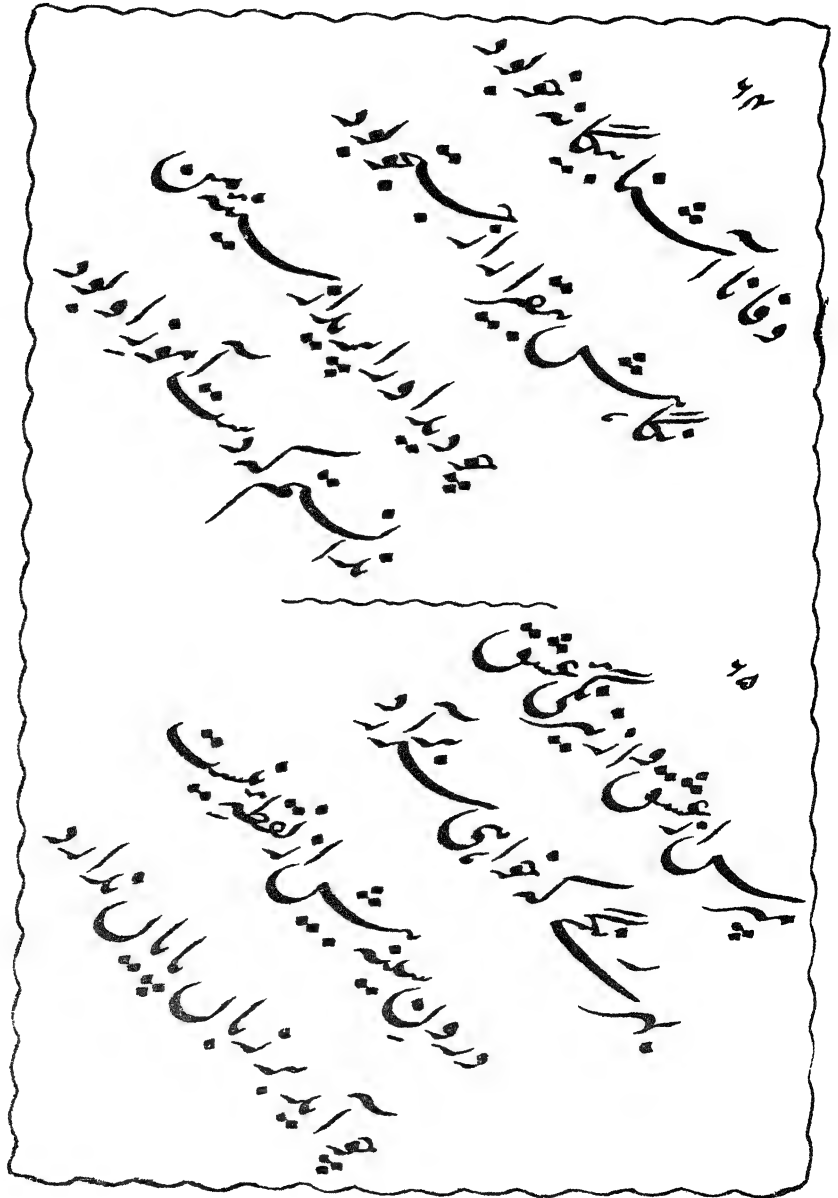 ۶۴
وفا نا آشنا بیگانه خو بود
نگاهش بیقرار از جستجو بود
چو دید او را پرید از سینهٔ من
ندانستم که دست آموز او بود
۶۵
مپرس از عشق و از نیرنگی عشق
بهر رنگے که خواهی سر برآرد
درونِ سینه بیش از نقطهٔ نیست
چو آید بر زبان پایان ندارد